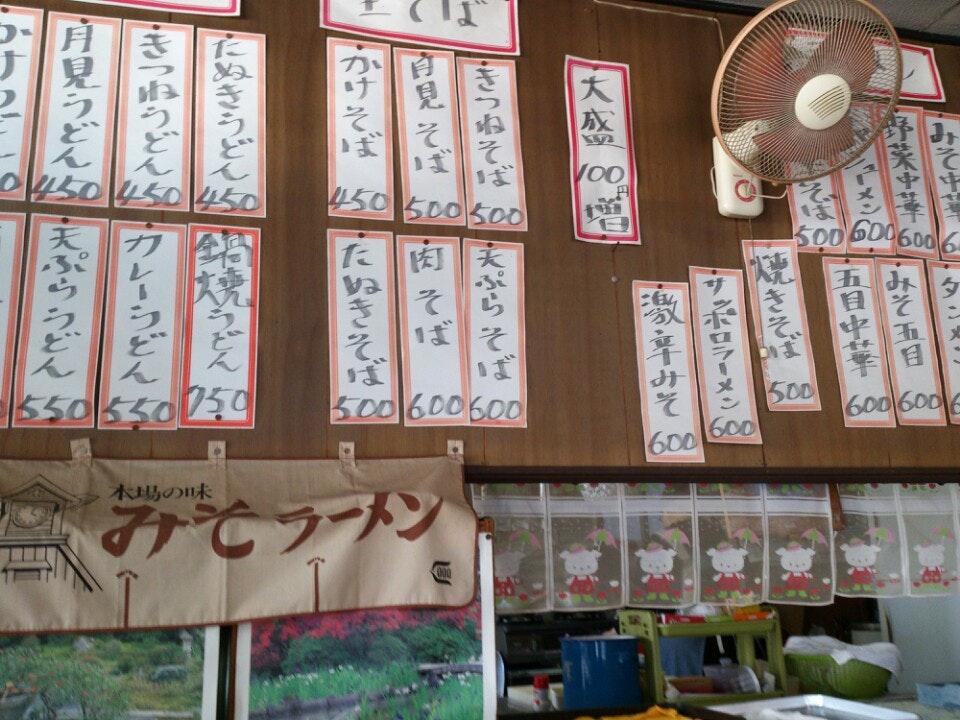 月見うどん 450
きつねうどん 450
たぬきうどん 450
天ぷらうどん 550
カレーうどん 550
鍋焼うどん 750
そば
かけそば 450
月見そば 500
きつねそば 500
たぬきそば 500
肉そば 600
天ぷらそば 600
大盛100円増
激辛みそ 600
サッポロラーメン 600
焼きそば 500
そば 500
ューメン 600
野菜中華 600
みそ中華 600
五目中華 600
みそ五目 600
本場の味
みそラーメン